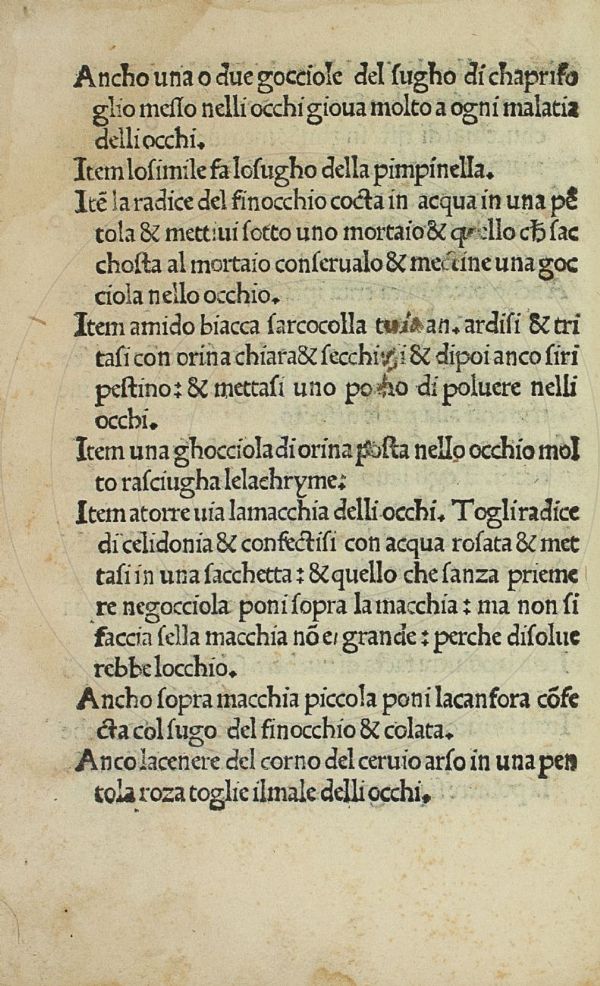 Ancho una o due gocciole del ſugho di chaprifo
glio meſſo nelli occhi gioua molto a ogni malatia
delli occhi.
Item loſimile fa loſugho della pimpinella.
Itē la radice del finocchio cocta in acqua in una pē
tola & mettiui ſotto uno mortaio & quello cħ ſac
choſta al mortaio conſerualo & mectine una goc
ciola nello occhio.
Item amido biacca ſarcocolla an. ardiſi & tri
taſi con orina chiara & ſecchiſi & dipoi anco ſiri
peſtino: & mettaſi uno pocho di poluere nelli
occhi.
Item una ghocciola di orina poſta nello occhio mol
to raſciugha lelachryme:
Item atorre uia lamacchia delli occhi. Togli radice
di celidonia & confectiſi con acqua roſata & met
taſi in una ſacchetta: & quello che ſanza prieme
re negocciola poni ſopra la macchia: ma non ſi
faccia ſella macchia nō e, grande: perche diſolue
rebbe locchio.
Ancho ſopra macchia piccola poni lacanfora cōfe
cta col ſugo del finocchio & colata.
Anco lacenere del corno del ceruio arſo in una pen
tola roza toglie ilmale delli occhi.